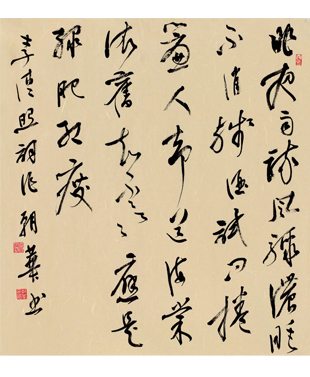 昨夜雨疏风骤浓睡
不消残酒试问捲
簾人却道海棠
依舊知否々々應是
绿肥红瘦
李清照詞作朝華书